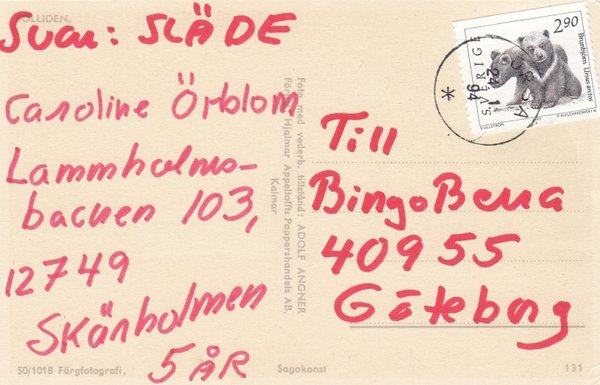 SOLLIDEN.
Svar: SLÄDE
Caroline Örblom
Lammholms-
backen 103,
12749
Skärholmen
5 ÅR
50/1018 Färgfotografi.
Foto med vederb. tillstånd: ADOLF ANGNER
Förlag Hjalmar Appeltoffts Pappershandels AB,
Kalmar
Sagokonst
131
2.90
Brunbjörn Ursus arctos
SVERIGE
24.1
94
*
Till
BingoBerra
40955
Göteborg